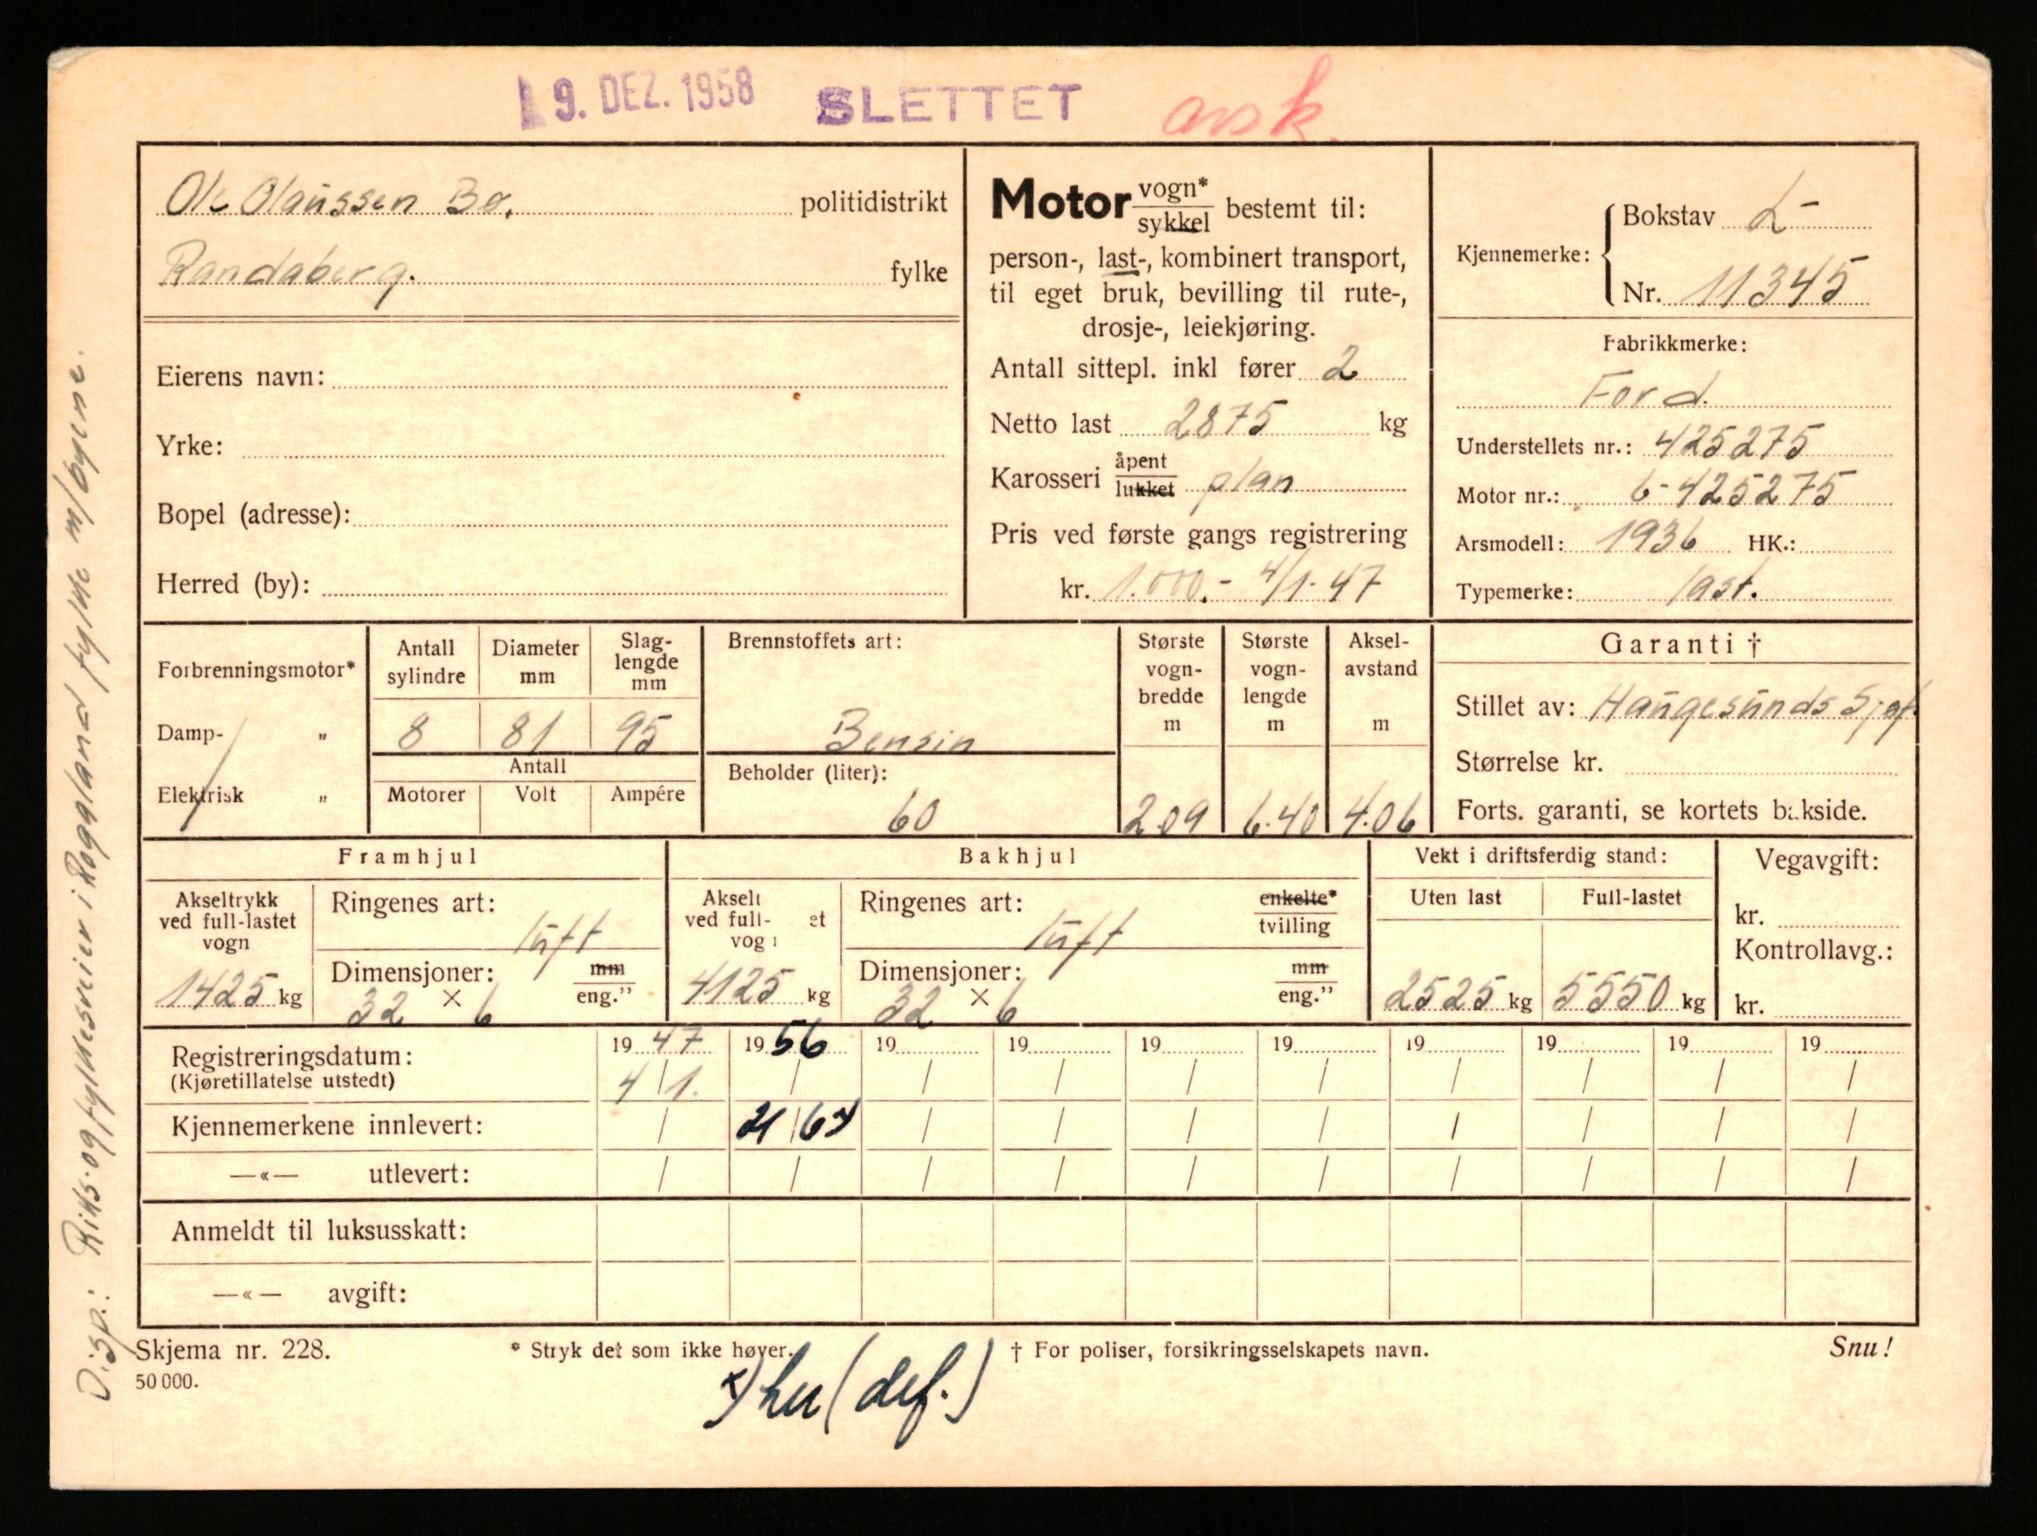 9. DEZ. 1958 SLETTET avsk.
Ole Olaussen Bø. politidistrikt
Randaberg. fylke
Eierens navn:
Yrke:
Bopel (adresse):
Herred (by):
Motor vogn* / sykkel bestemt til:
person-, last-, kombinert transport,
til eget bruk, bevilling til rute-,
drosje-, leiekjøring.
Antall sittepl. inkl fører 2
Netto last 2875 kg
Karosseri åpent / lukket plan
Pris ved første gangs registrering
kr. 1.000.- 4/1-47
Kjennemerke: Bokstav L-
Nr. 11345
Fabrikkmerke:
Ford.
Understellets nr.: 425275
Motor nr.: 6-425275
Arsmodell: 1936 HK.:
Typemerke: last.
Forbrenningsmotor*
Damp- "
Elektrisk "
Antall sylindre
Diameter mm
Slag-lengde mm
8 81 95
Antall
Motorer Volt Ampére
Brennstoffets art:
Bensin
Beholder (liter):
60
Største vogn-bredde m
2.09
Største vogn-lengde m
6.40
Aksel-avstand m
4.06
Garanti †
Stillet av: Haugesunds Sjøf.
Størrelse kr.
Forts. garanti, se kortets bakside.
Framhjul
Akseltrykk
ved full-lastet
vogn
1425 kg
Ringenes art:
luft
Dimensjoner: mm / eng."
32 × 6
Bakhjul
Akselt
ved full- et
vog
4125 kg
Ringenes art: enkelte* / tvilling
luft
Dimensjoner: mm / eng."
32 × 6
Vekt i driftsferdig stand:
Uten last Full-lastet
2525 kg 5550 kg
Vegavgift:
kr.
Kontrollavg.:
kr.
Registreringsdatum: 19 47 19 56 19 19 19 19 19 19 19 19
(Kjøretillatelse utstedt) 4/1. / / / / / / / / /
Kjennemerkene innlevert: / / / / / / / / /
—«— utlevert: / / / / / / / / / /
Anmeldt til luksusskatt:
—«— avgift:
Skjema nr. 228. * Stryk det som ikke høver. † For poliser, forsikringsselskapets navn. Snu!
50 000.
x) her (def.)
Disp.: Riks- og fylkesveier i Roggland fylke m/byene.